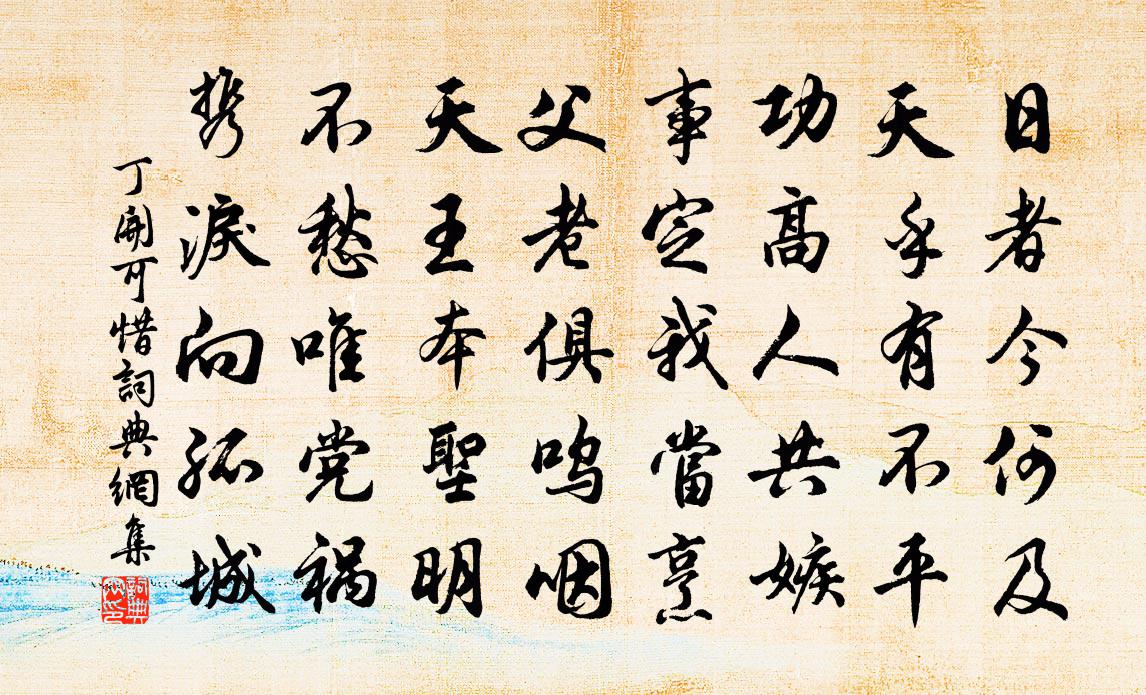 日者今何及
天乎有不平
功高人共嫉
事定我當烹
父老俱鸣咽
天王本聖明
不愁唯党祸
携淚向孤城
丁開可惜詞典網集